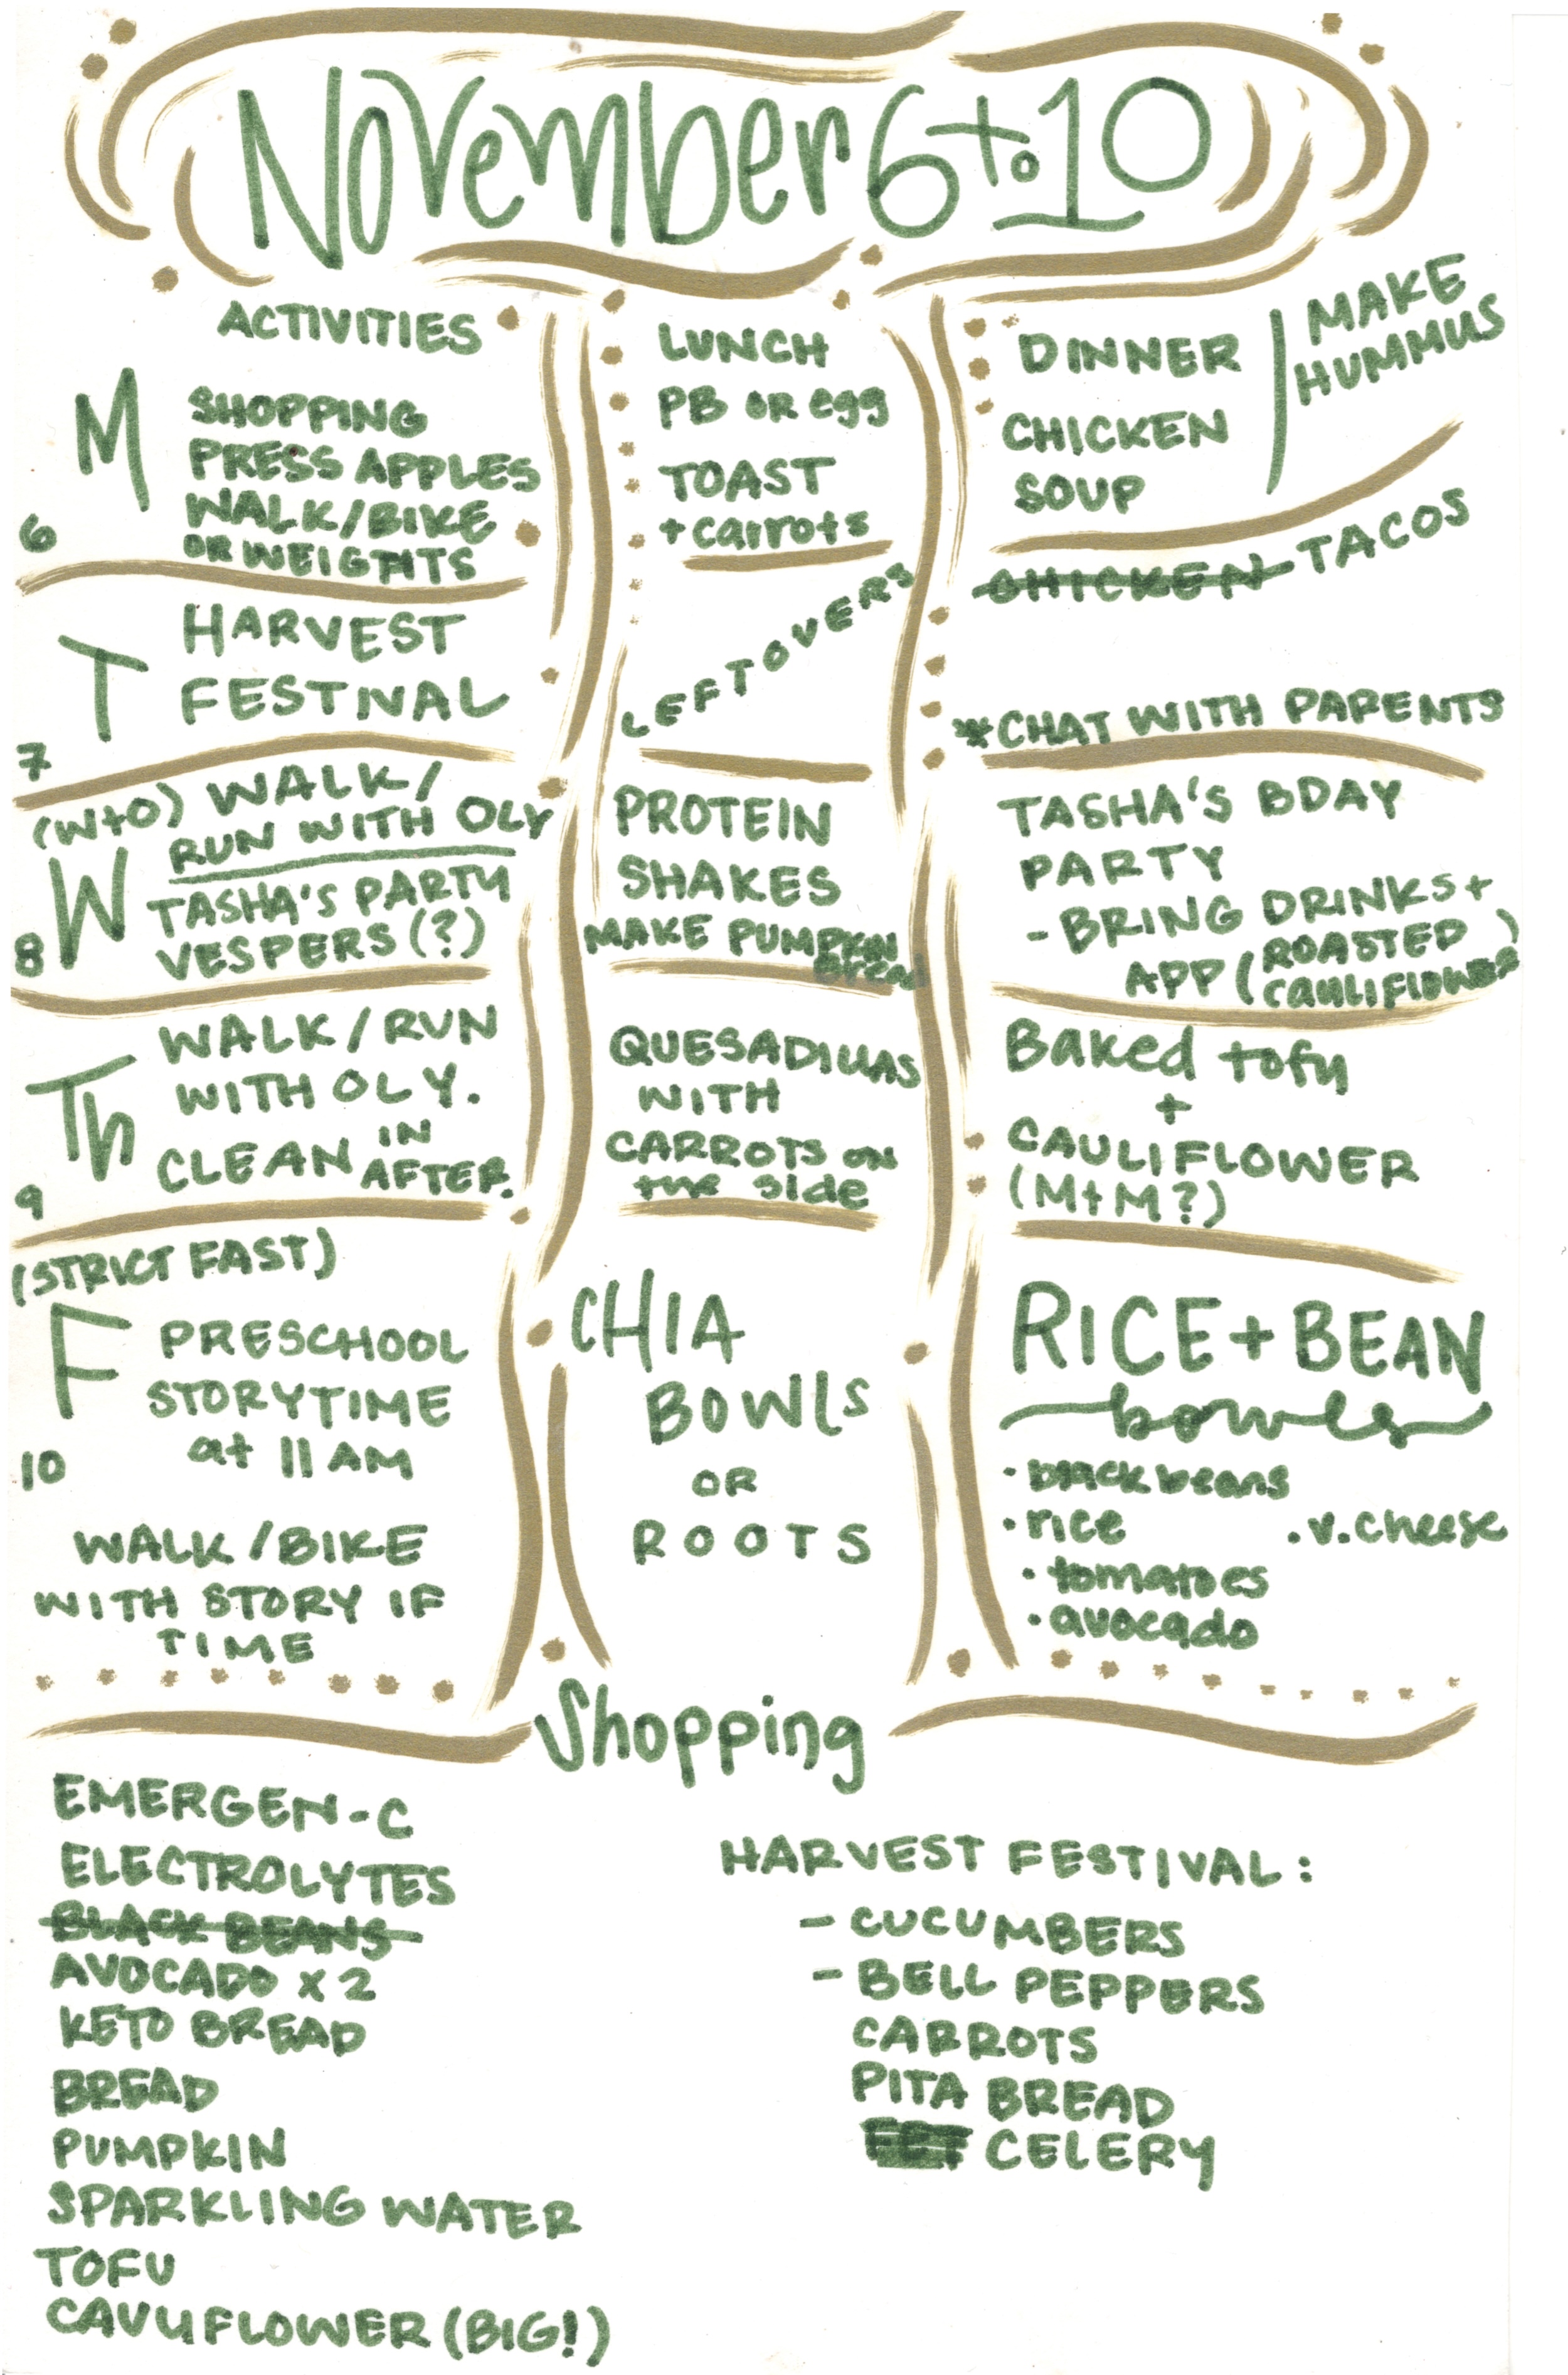 November 6 to 10
ACTIVITIES
M
6
SHOPPING
PRESS APPLES
WALK/BIKE
OR WEIGHTS
LUNCH
PB OR egg
TOAST
+ carrots
DINNER
CHICKEN
SOUP
MAKE
HUMMUS
T
7
HARVEST
FESTIVAL
LEFTOVERS
CHICKEN TACOS
*CHAT WITH PARENTS
(W+O) WALK/
RUN WITH OLY
W
8
TASHA'S PARTY
VESPERS (?)
PROTEIN
SHAKES
MAKE PUMPKIN
bread
TASHA'S BDAY
PARTY
- BRING DRINKS +
APP (ROASTED
CAULIFLOWER)
Th
9
WALK/RUN
WITH OLY.
CLEAN IN
AFTER.
QUESADILLAS
WITH
CARROTS on
the side
Baked tofu
+
CAULIFLOWER
(M+M?)
(STRICT FAST)
F
10
PRESCHOOL
STORYTIME
at 11 AM
WALK/BIKE
WITH STORY IF
TIME
CHIA
BOWLS
OR
ROOTS
RICE + BEAN
bowls
• black beans
• rice
• v. cheese
• tomatoes
• avocado
Shopping
EMERGEN-C
ELECTROLYTES
BLACK BEANS
AVOCADO x 2
KETO BREAD
BREAD
PUMPKIN
SPARKLING WATER
TOFU
CAULIFLOWER (BIG!)
HARVEST FESTIVAL:
- CUCUMBERS
- BELL PEPPERS
CARROTS
PITA BREAD
CELERY